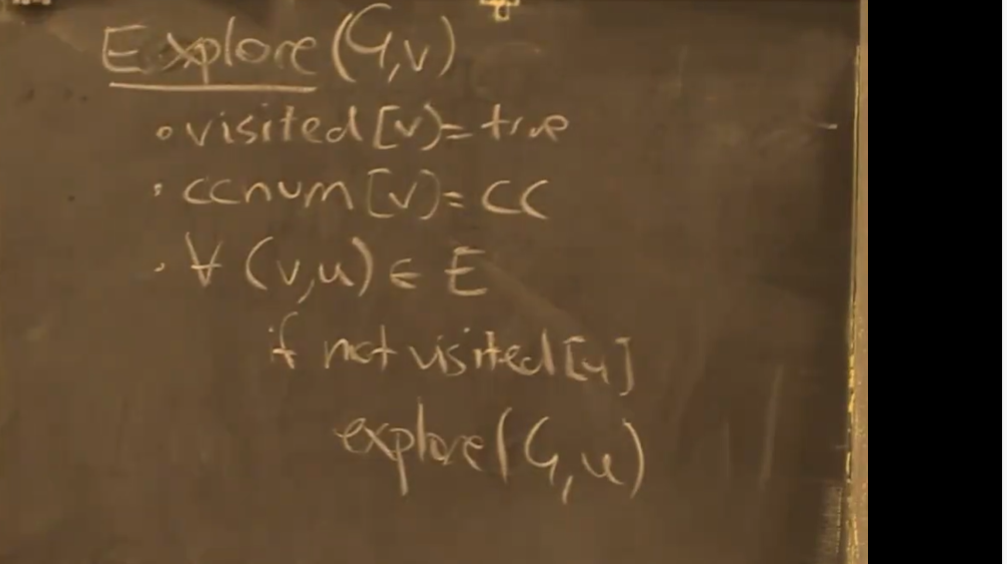 Explore(G,v)
• visited[v]=true
• ccnum[v]=CC
• ∀ (v,u) ∈ E
if not visited[u]
explore(G,u)